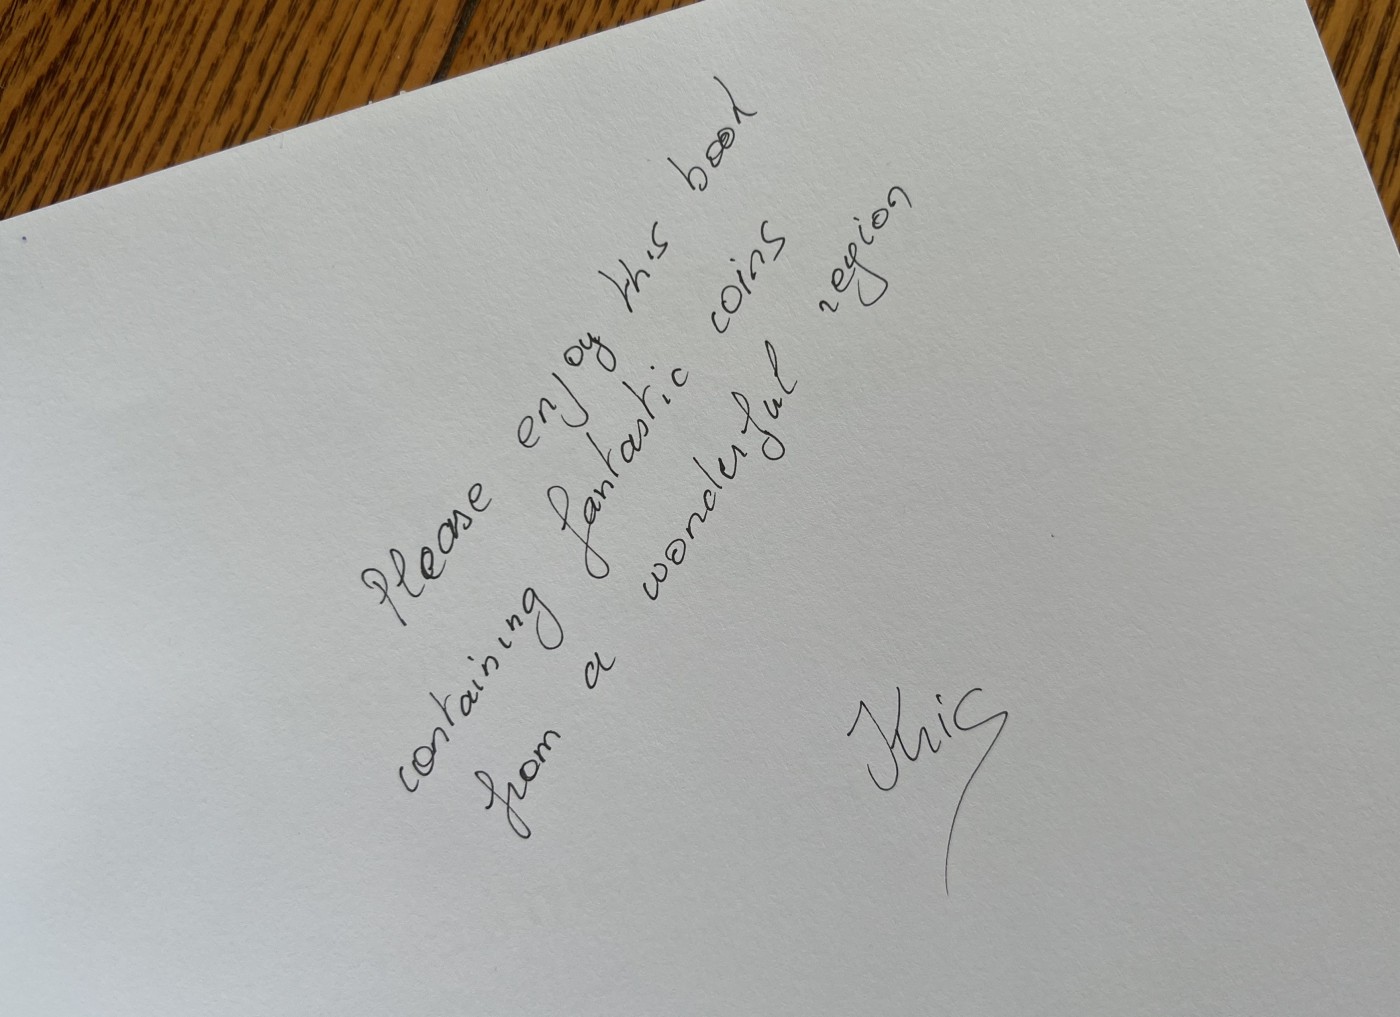 Please enjoy this book
containing fantastic coins
from a wonderful region
Kris